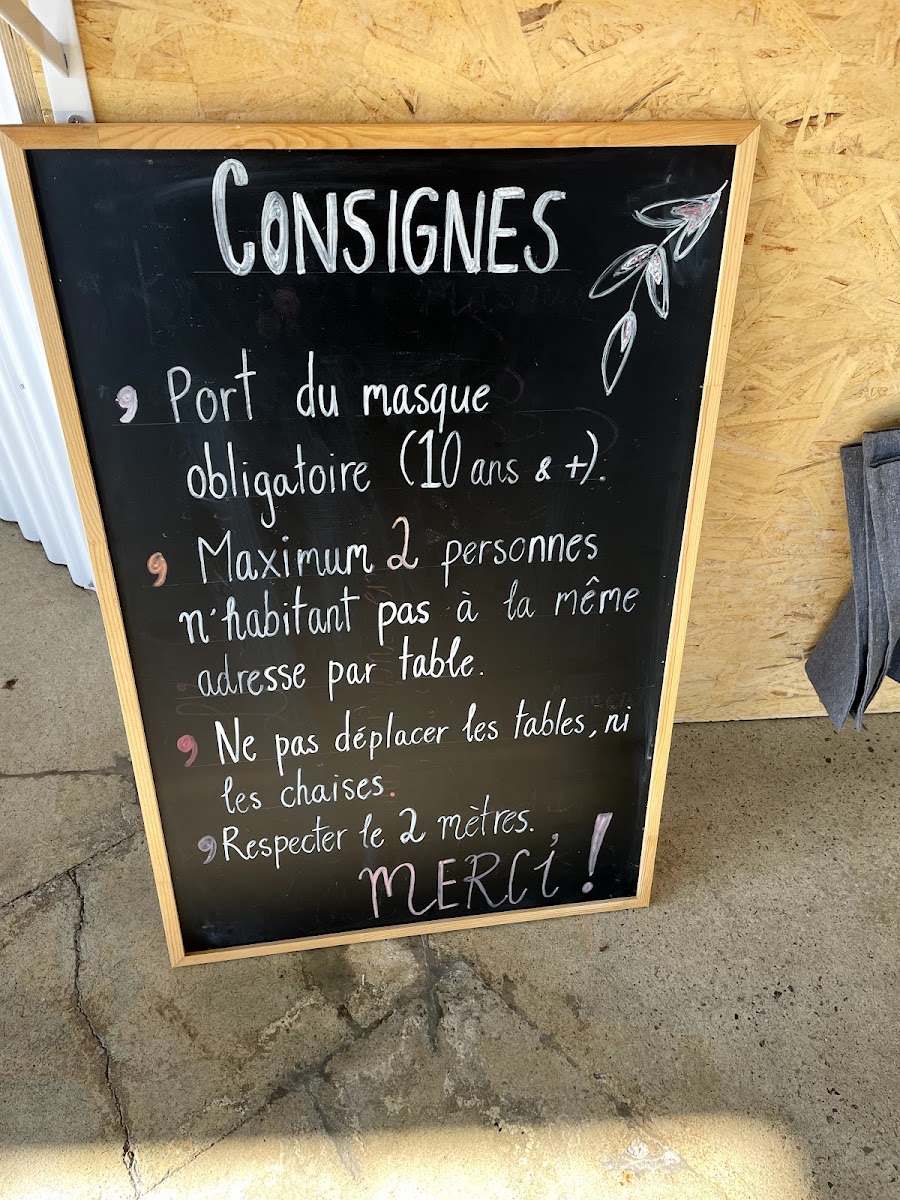 CONSIGNES
, Port du masque
obligatoire (10 ans & +).
, Maximum 2 personnes
n'habitant pas à la même
adresse par table.
, Ne pas déplacer les tables, ni
les chaises.
, Respecter le 2 mètres.
MERCI !